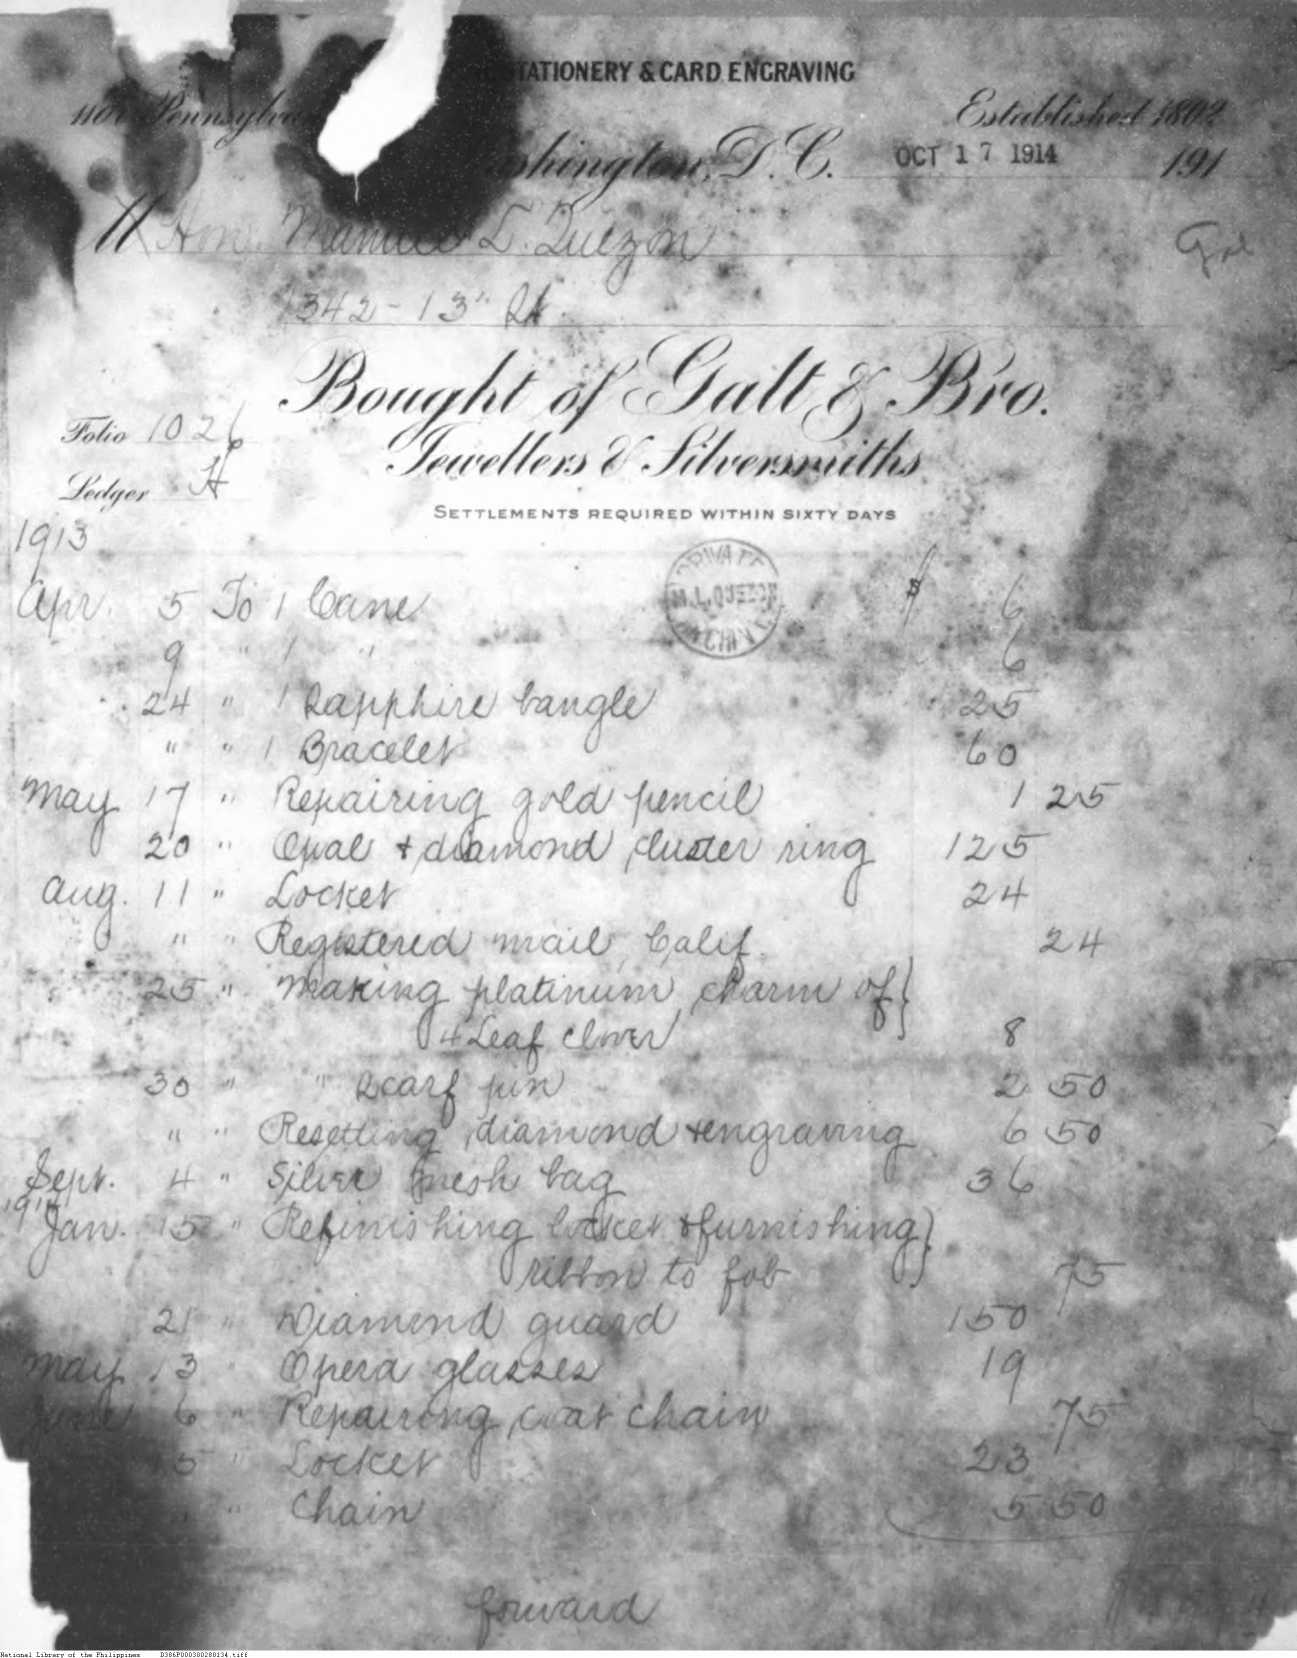 STATIONERY & CARD ENGRAVING
1107 Pennsylva Established 1802
shington, D. C. OCT 17 1914 191
M Hon. Manuel L. Quezon
1342 - 13" St.
Bought of Galt & Bro.
Folio 1026
Jewellers & Silversmiths
Ledger H
SETTLEMENTS REQUIRED WITHIN SIXTY DAYS
1913
PRIVATE M.L. QUEZON ARCHIVES
Apr. 5 To 1 Cane $ 6
9 " 1 " 6
24 " 1 Sapphire bangle 25
" " 1 Bracelet 60
May 17 " Repairing gold pencil 1 25
20 " Opal & diamond cluster ring 125
Aug. 11 " Locket 24
" " Registered mail, Calif. 24
25 " Making platinum charm of }
4 Leaf clover 8
30 " " Scarf pin 2 50
" " Resetting diamond & engraving 6 50
Sept. 4 " Silver mesh bag 36
1914
Jan. 15 " Refinishing locket & furnishing }
ribbon to fob 75
21 " Diamond guard 150
May 13 " Opera glasses 19
June 6 " Repairing coat chain 75
5 " Locket 23
" Chain 5 50
forward
National Library of the Philippines D386P000300280134.tiff